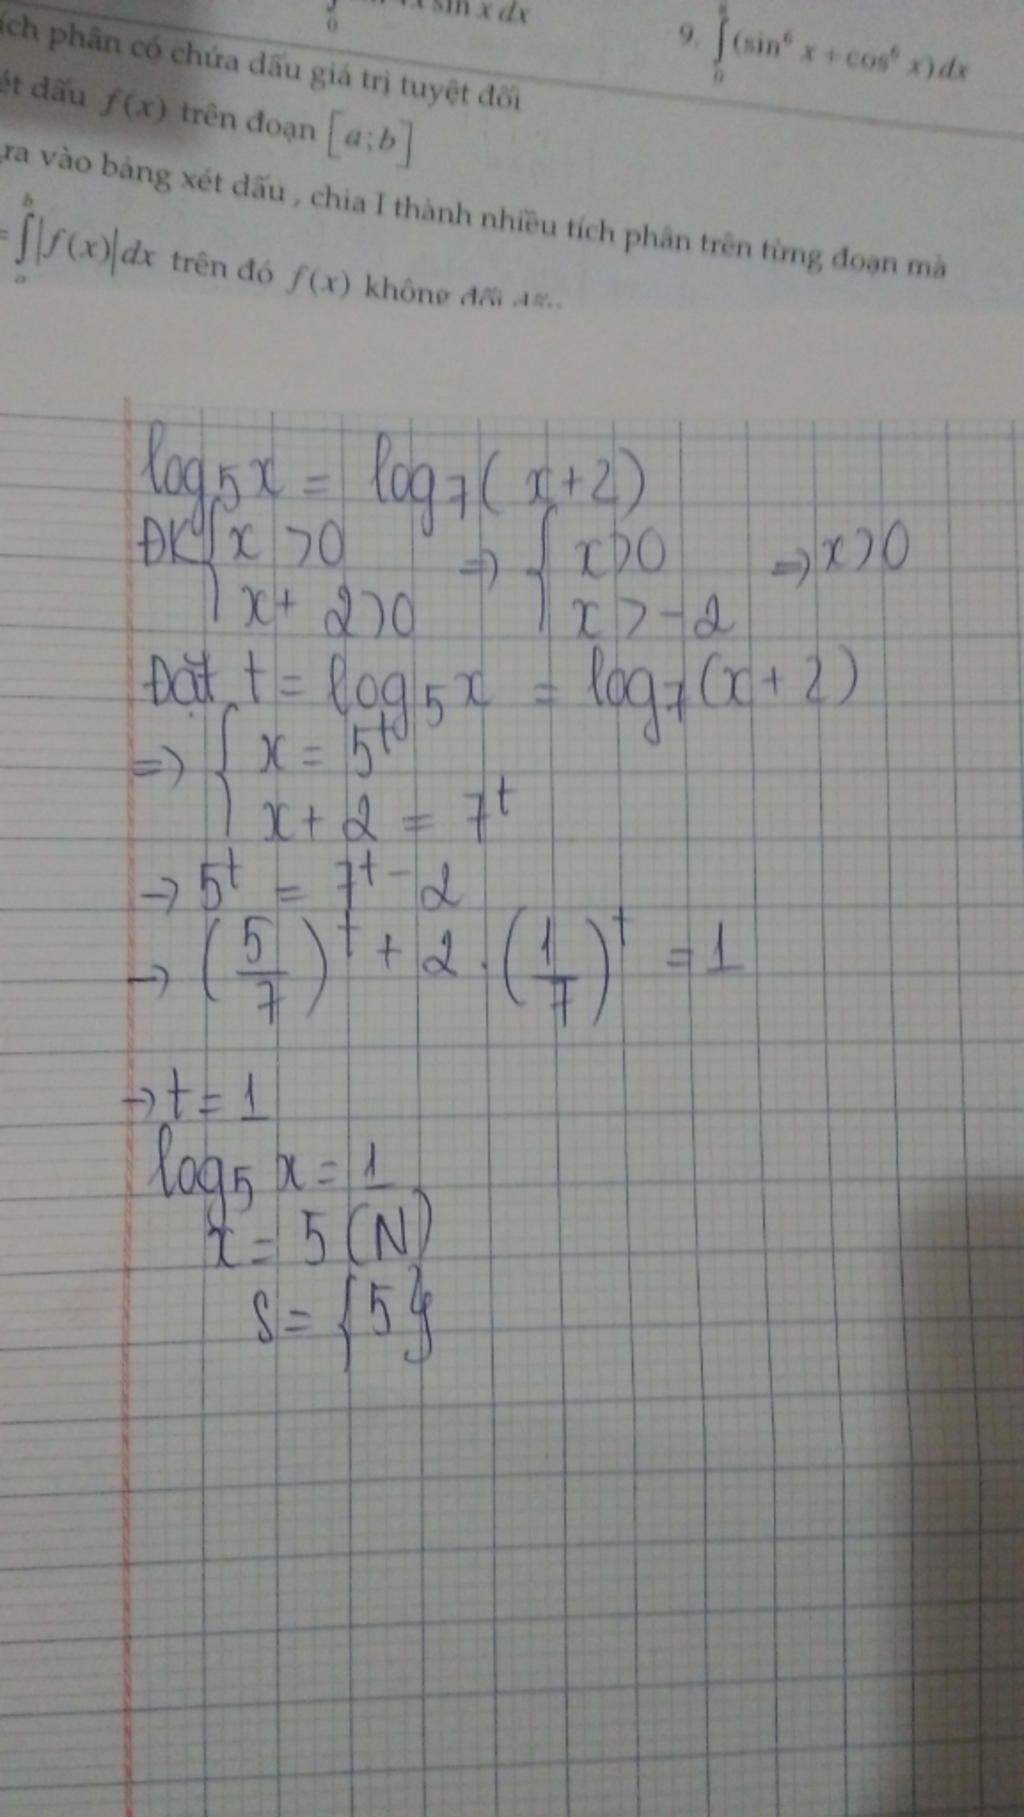 sin x dx
9. ∫₀ (sin⁶ x + cos⁶ x) dx
ích phân có chứa dấu giá trị tuyệt đối
ét dấu f(x) trên đoạn [a;b]
ra vào bảng xét dấu , chia I thành nhiều tích phân trên từng đoạn mà
= ∫ₐᵇ |f(x)| dx trên đó f(x) không đổi
log₅x = log₇(x+2)
ĐK { x > 0 ⇒ { x > 0 ⇒ x > 0
x + 2 > 0 x > -2
Đặt t = log₅x = log₇(x+2)
⇒ { x = 5ᵗ
x + 2 = 7ᵗ
→ 5ᵗ = 7ᵗ - 2
→ (5/7)ᵗ + 2.(1/7)ᵗ = 1
→ t = 1
log₅ x = 1
x = 5 (N)
S = {5}